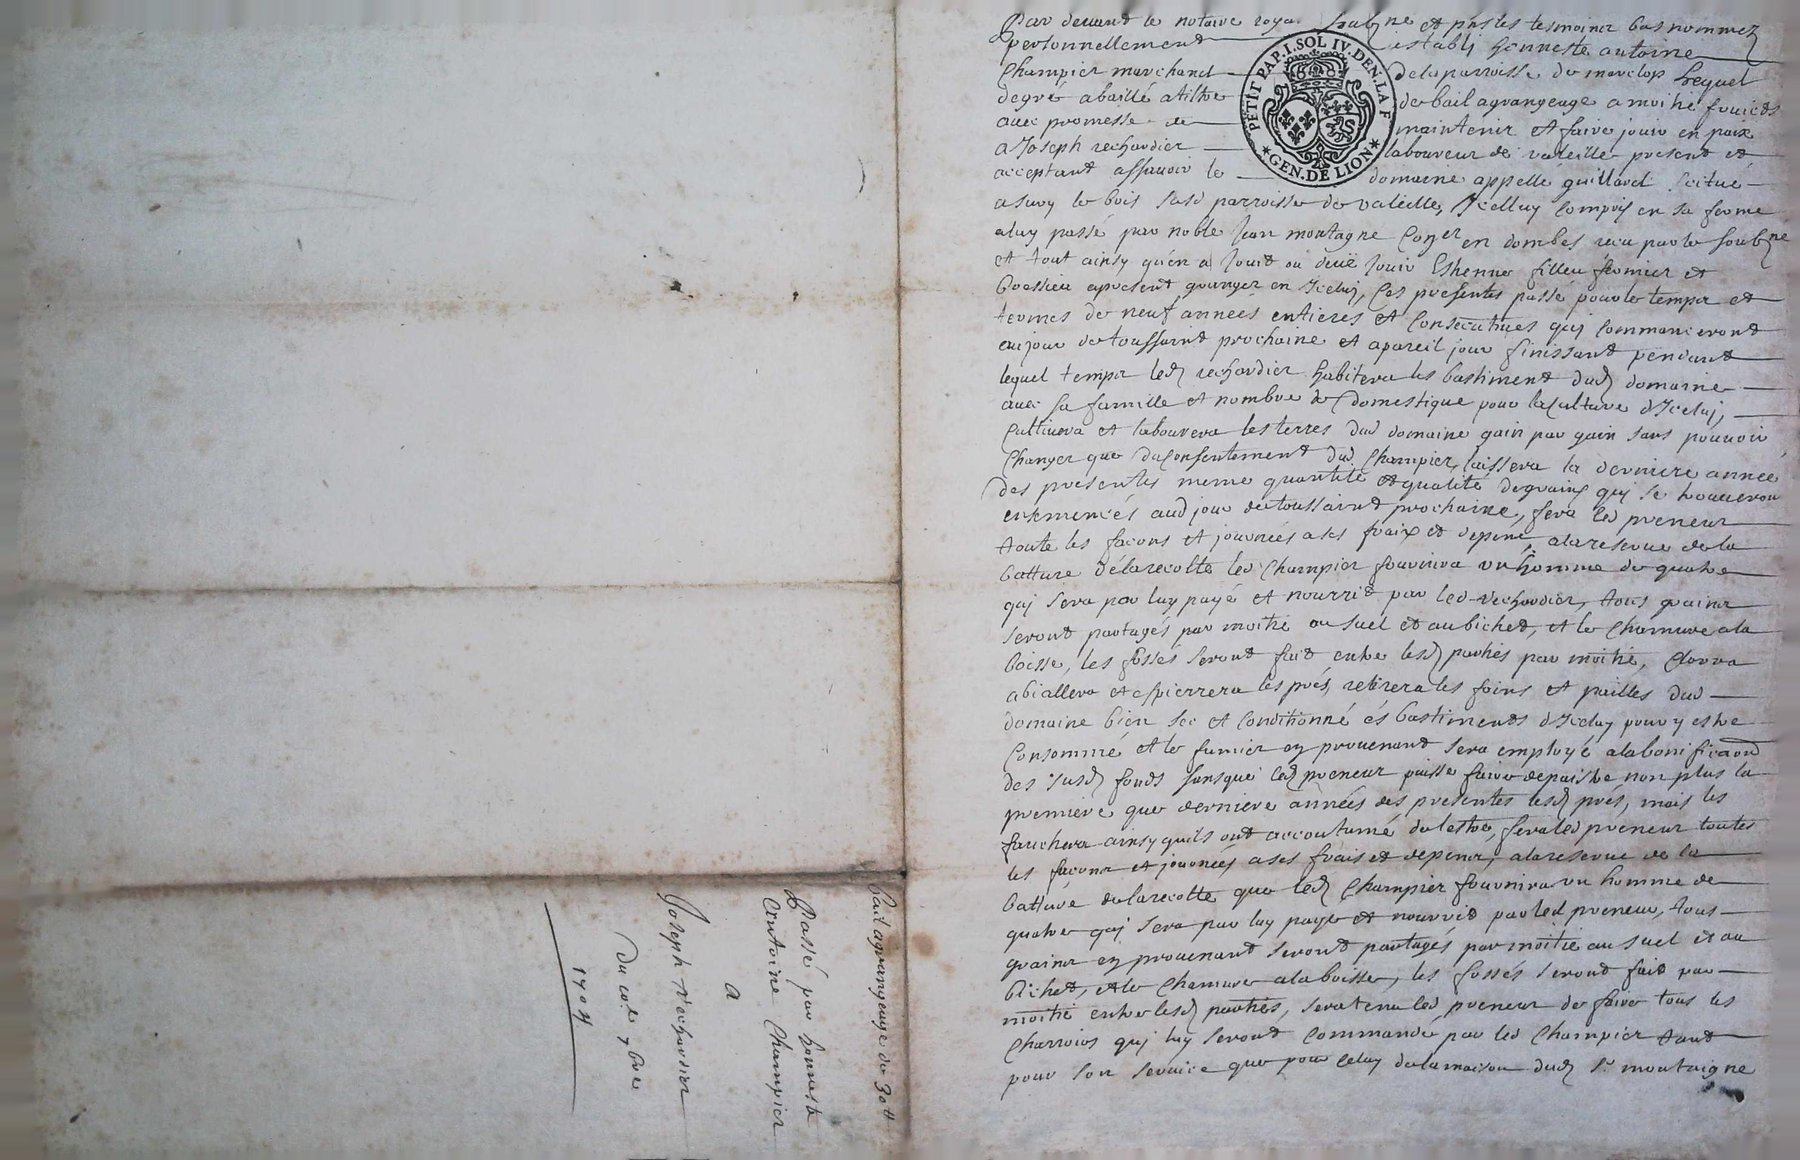 Par devant le notaire royal soubzne et p̃ns les tesmoins bas nommez
personnellement establi honneste antoine
Champier marchand de la parroisse de marclop lequel
de gré a baillé a tiltre de bail a grangeage a moitie fruicts
avec promesse de maintenir et faire jouir en paix
a Joseph rechardier laboureur de valeille present et
acceptant assavoir le domaine appelle guillard scitue
a sury le bois susd parroisse de valeille, Icelluy compris en sa ferme
a luy passé par noble Jean montagne Con.er en dombes receu par le soubzne
et tout ainsy qu'en a jouit ou deue jouir Estienne filleu fermier et
boessieu apresent granger en Iceluj, Ces presentes passé pour le temps et
termes de neuf années entieres et consecutives quj commanceront
au jour de toussaint prochaine et a pareil jour finissant pendant
lequel temps led rechardier habitera les bastiment dud domaine
avec sa famille et nombre de domestique pour la culture d'Iceluj,
Cultivera et labourera les terres dud domaine gain par gain sans pouvoir
changer que du consentement dud Champier, laissera la derniere année
des presentes meme quantité et qualité de grains quj se trouveron
ensemencés aud jour de toussaint prochaine, fera led preneur
toute les facons et journées a ses fraix et depens, a la reserve de la
batture de la recolte led Champier fournira un homme de quatre
quj sera par luy payé et nourrit par led rechardier, tous grains
seront partagés par moitie au suel et au bichet, et le chanvre a la
boisse, les fossés seront fait entre lesd parties par moitie, Clorra
abiallera et espierrera les prés, retirera les foins et pailles dud
domaine bien sec et conditionné és bastiments d'Iceluy pour y estre
consommé et le fumier en provenant sera employé a la bonificaon
des susd fonds sans que led preneur puisse faire depaistre non plus la
premiere que derniere années des presentes lesd prés, mais les
fauchera ainsy quils ont accoutumé de lestre, fera led preneur toutes
les facons et journées a ses frais et depens, a la reserve de la
batture de la recolte que led Champier fournira un homme de
quatre quj sera par luy payé et nourrit par led preneur, tous
grains en provenant seront partagés par moitie au suel et au
bichet, et le chanvre a la boisse, les fossés seront fait par
moitie entre lesd parties, sera tenu led preneur de faire tous les
charrois quj luy seront commandé par led Champier tant
pour son service que pour celuy de la maison dud sr montaigne
PETIT PAP. I. SOL IV. DEN. LA F
GEN. DE LION
bail a grangeage du 30tt
Passé par honneste
Antoine Champier
a
Joseph rechardier
Du 7bre
1704